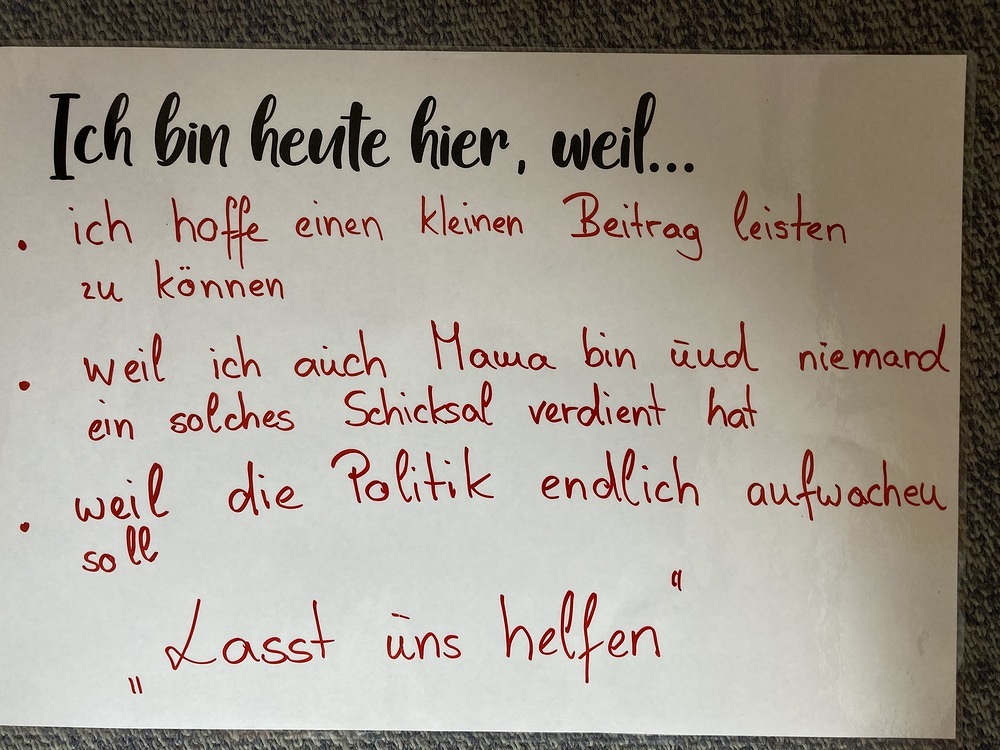 Ich bin heute hier, weil...
• ich hoffe einen kleinen Beitrag leisten
zu können
• weil ich auch Mama bin und niemand
ein solches Schicksal verdient hat
• weil die Politik endlich aufwachen
soll
„Lasst uns helfen“